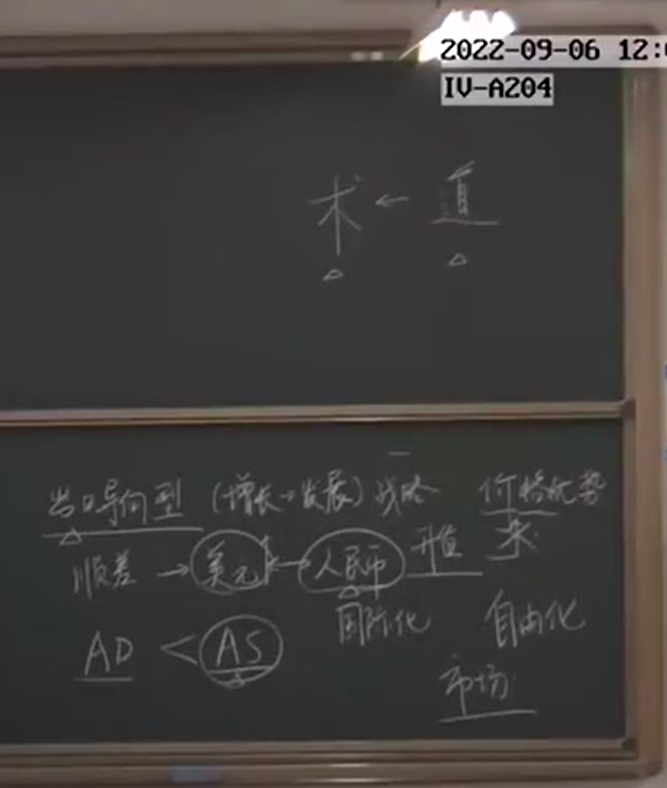 2022-09-06 12:0
IV-A204
术 ← 道
出口导向型 (增长→发展) 战略 价格优势
顺差 → 美元 ←→ 人民币 升值
国际化 自由化
AD < AS
市场